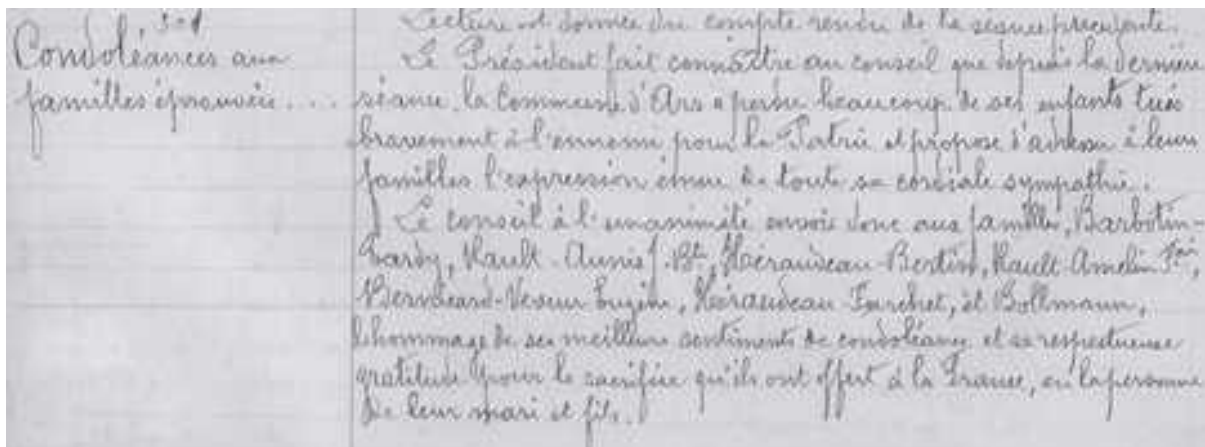 Condoléances aux
familles éprouvées...
Lecture est donnée du compte rendu de la séance précédente.
Le Président fait connaître au conseil que depuis la dernière
séance, la Commune d'Ars a perdu beaucoup de ses enfants tués
bravement à l'ennemi pour la Patrie et propose d'adresser à leurs
familles l'expression émue de toute sa cordiale sympathie.
Le conseil à l'unanimité envoie donc aux familles, Barbotin-
Gardy, Rault-Aunis J. Bte, Héraudeau-Bertin, Rault-Amelin
Eugène, Héraudeau Furchet, et Bollmann,
l'hommage de ses meilleurs sentiments de condoléance et sa respectueuse
gratitude pour le sacrifice qu'ils ont offert à la France, en la personne
de leur mari et fils.